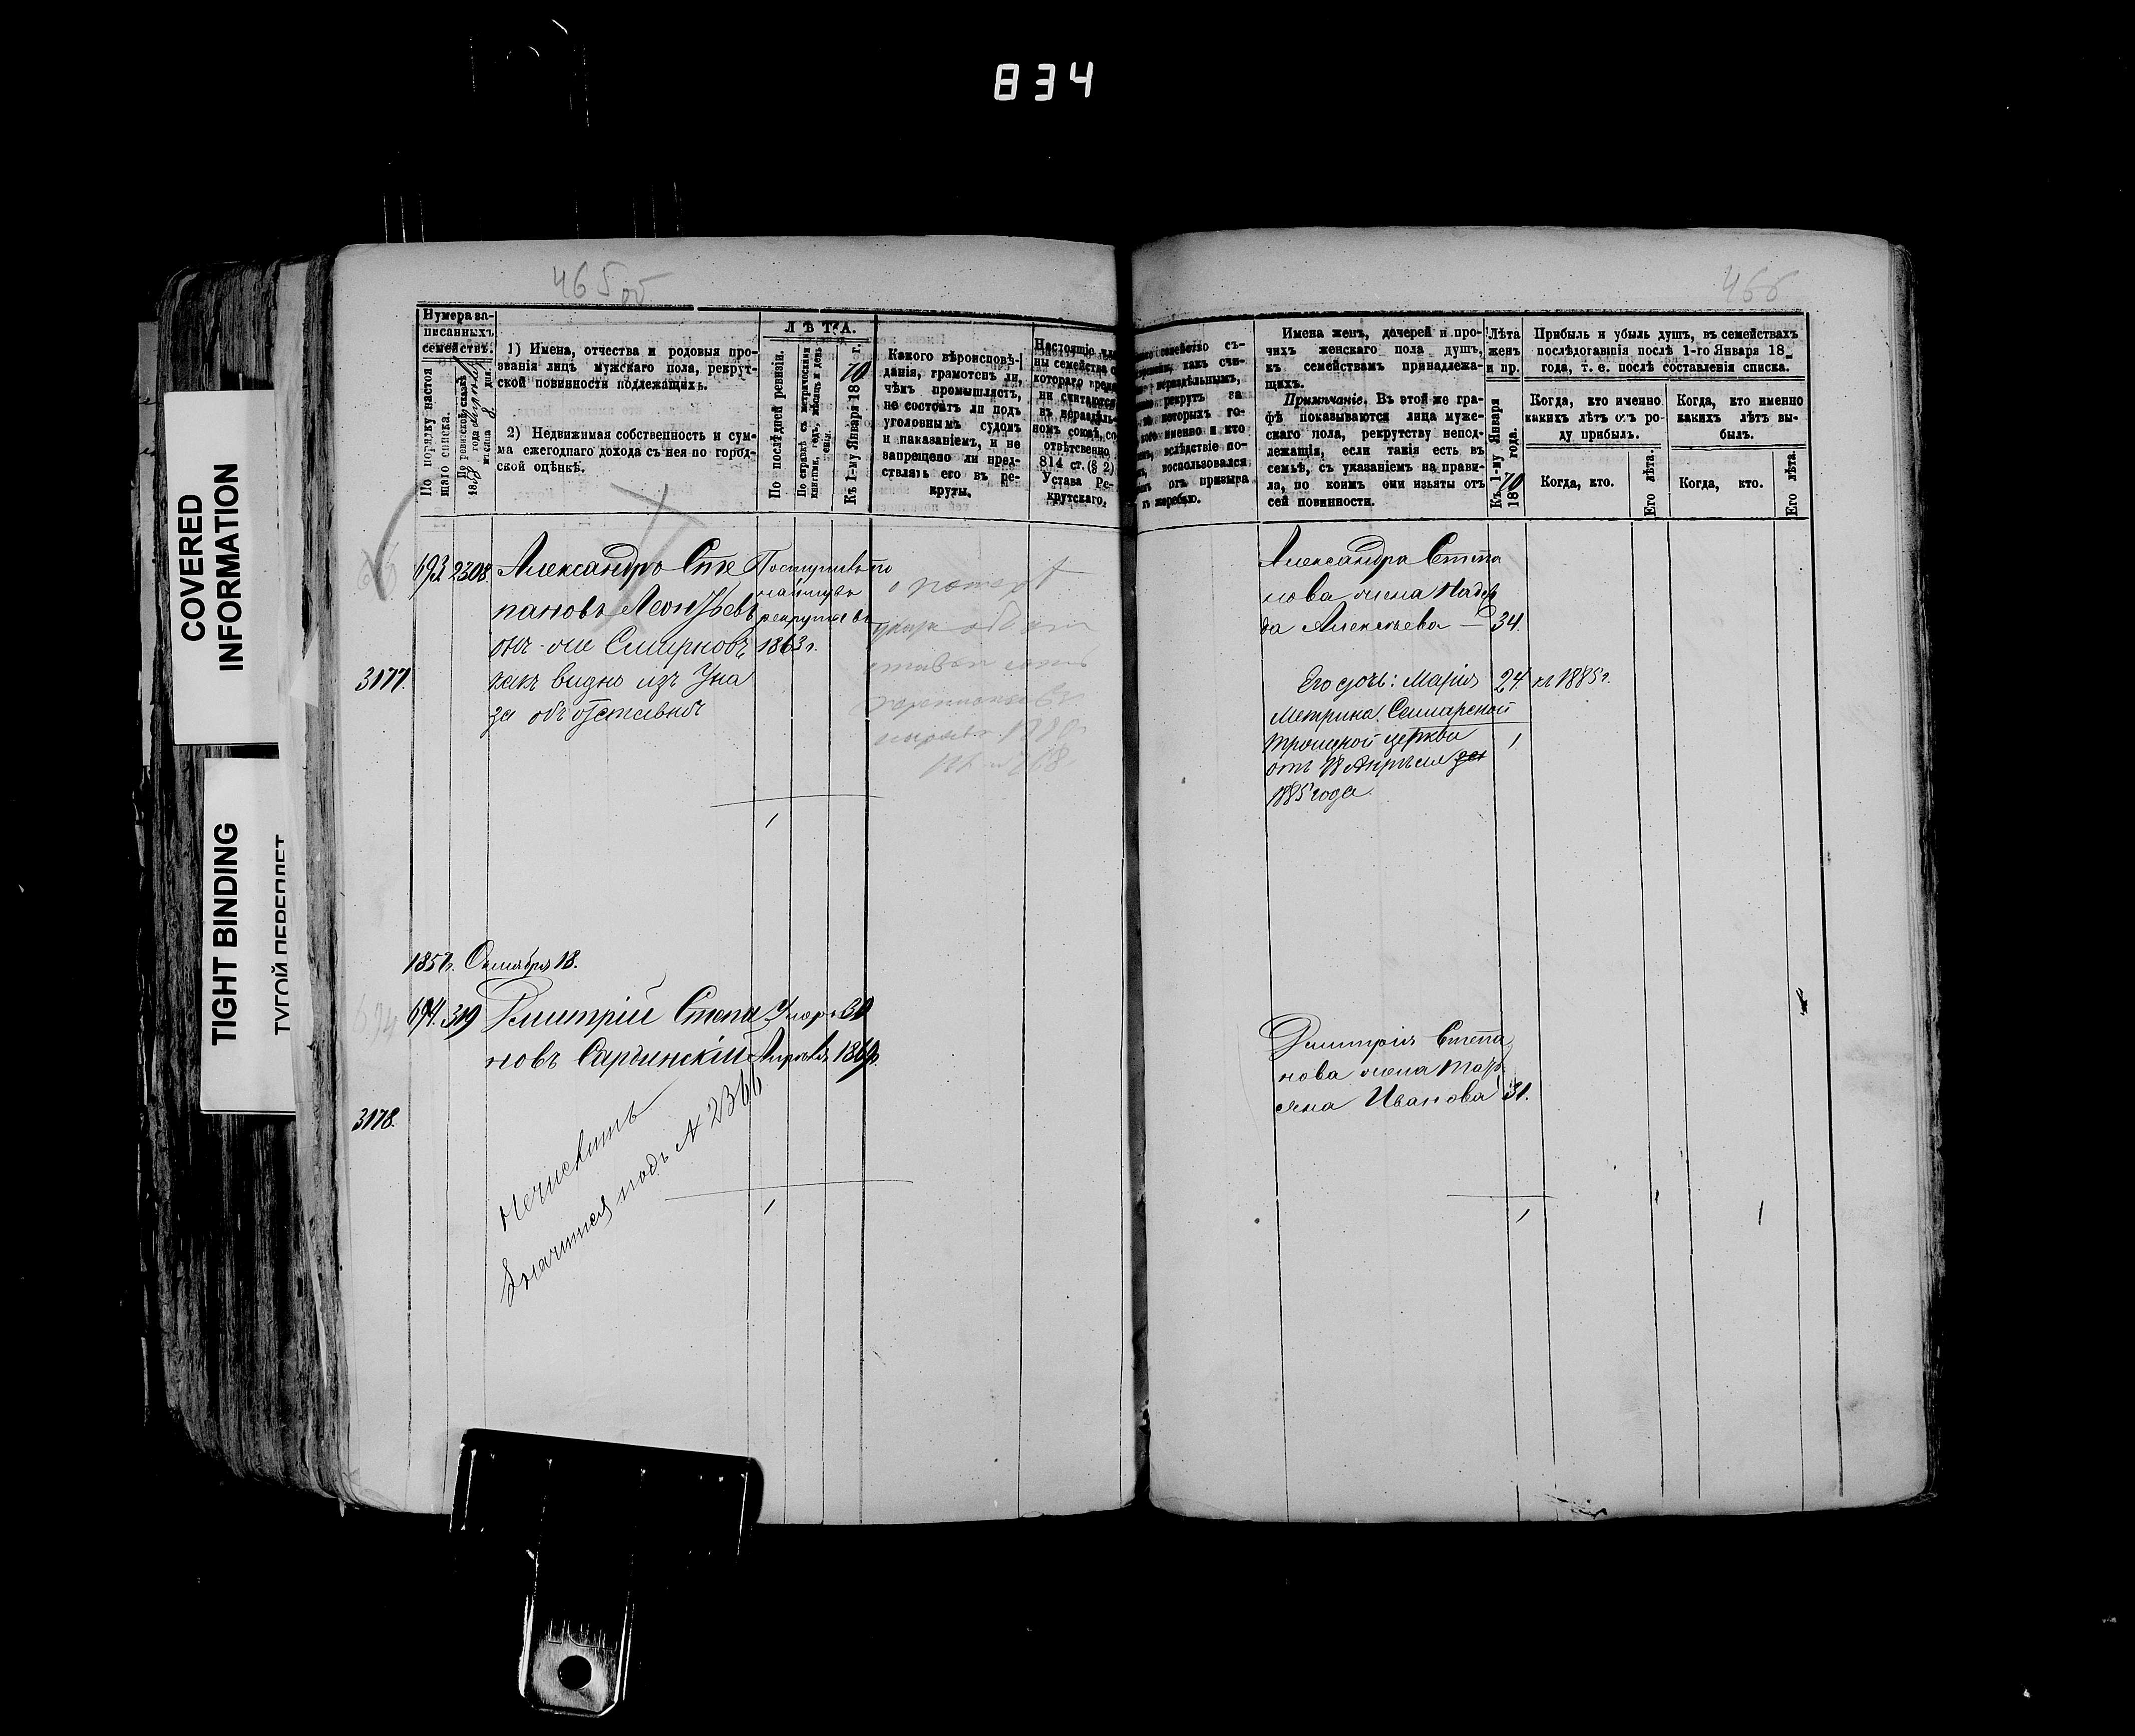 834
COVERED
INFORMATION
TIGHT BINDING
ТУГОЙ ПЕРЕПЛЕТ
465 об
Нумера за-
писанныхъ
семействъ.
По порядку настоя
щаго списка.
По ревизской сказкѣ
1858 года
мѣсяца 8 дня.
1) Имена, отчества и родовыя про-
званія лицъ мужскаго пола, рекрут-
ской повинности подлежащихъ.
2) Недвижимая собственность и сум-
ма ежегоднаго дохода съ нея по город-
ской оцѣнкѣ.
ЛѢТА.
По послѣдней ревизіи.
По справкѣ съ метрическими
книгами, годъ, мѣсяцъ и день
Къ 1-му Января 1870 г.
Какого вѣроисповѣ-
данія, грамотенъ ли,
чѣмъ промышляетъ,
не состоитъ ли подъ
уголовнымъ судомъ
и наказаніемъ, и не
запрещено ли пред-
ставлять его въ ре-
круты.
Настоящіе
ны семейства
котораго
ни считаются
въ нераздѣль-
номъ союзѣ, со
отвѣтственно
814 ст. (§ 2)
Устава Ре-
крутскаго.
693. 2308. Александръ Сте
пановъ Леонтьевъ
онъ-же Смирновъ,
какъ видно изъ Ука
за объ отставкѣ
Поступилъ по
найму въ
рекруты въ
1863 г.
3177.
1
1857 г. Октября 18.
694. 319 Дмитрій Степа
новъ Сарчинскій
Умеръ 30
Апрѣля 1869 г.
3178.
Значится подъ № 2366
1
466
семейство
какъ счи-
нераздѣльнымъ,
рекрутъ за
которыхъ го-
именно и кто
вслѣдствіе по-
воспользовался
отъ призыва
къ жеребью.
Имена женъ, дочерей и про-
чихъ женскаго пола душъ,
къ семействамъ принадлежа-
щихъ.
Примѣчаніе. Въ этой же гра-
фѣ показываются лица муже-
скаго пола, рекрутству непод-
лежащія, если такія есть въ
семьѣ, съ указаніемъ на прави-
ла, по коимъ они изъяты отъ
сей повинности.
Лѣта
женъ
и пр.
Къ 1-му Января
1870 года.
Прибыль и убыль душъ, въ семействахъ
послѣдовавшія послѣ 1-го Января 18
года, т. е. послѣ составленія списка.
Когда, кто именно
какихъ лѣтъ отъ ро-
ду прибылъ.
Когда, кто именно
какихъ лѣтъ вы-
былъ.
Когда, кто.
Его лѣта.
Когда, кто.
Его лѣта.
Александра Степа
нова жена Надеж
да Алексѣева — 34.
Его дочь: Марія 24. къ 1885 г.
Метрика Самарской
Троицкой церкви
отъ 18 Апрѣля
1885 года.
1
Дмитрія Степа
нова жена Тать
яна Иванова 31.
1
1